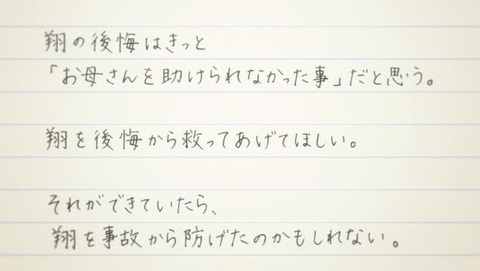 翔の後悔はきっと
「お母さんを助けられなかった事」だと思う。
翔を後悔から救ってあげてほしい。
それができていたら、
翔を事故から防げたのかもしれない。